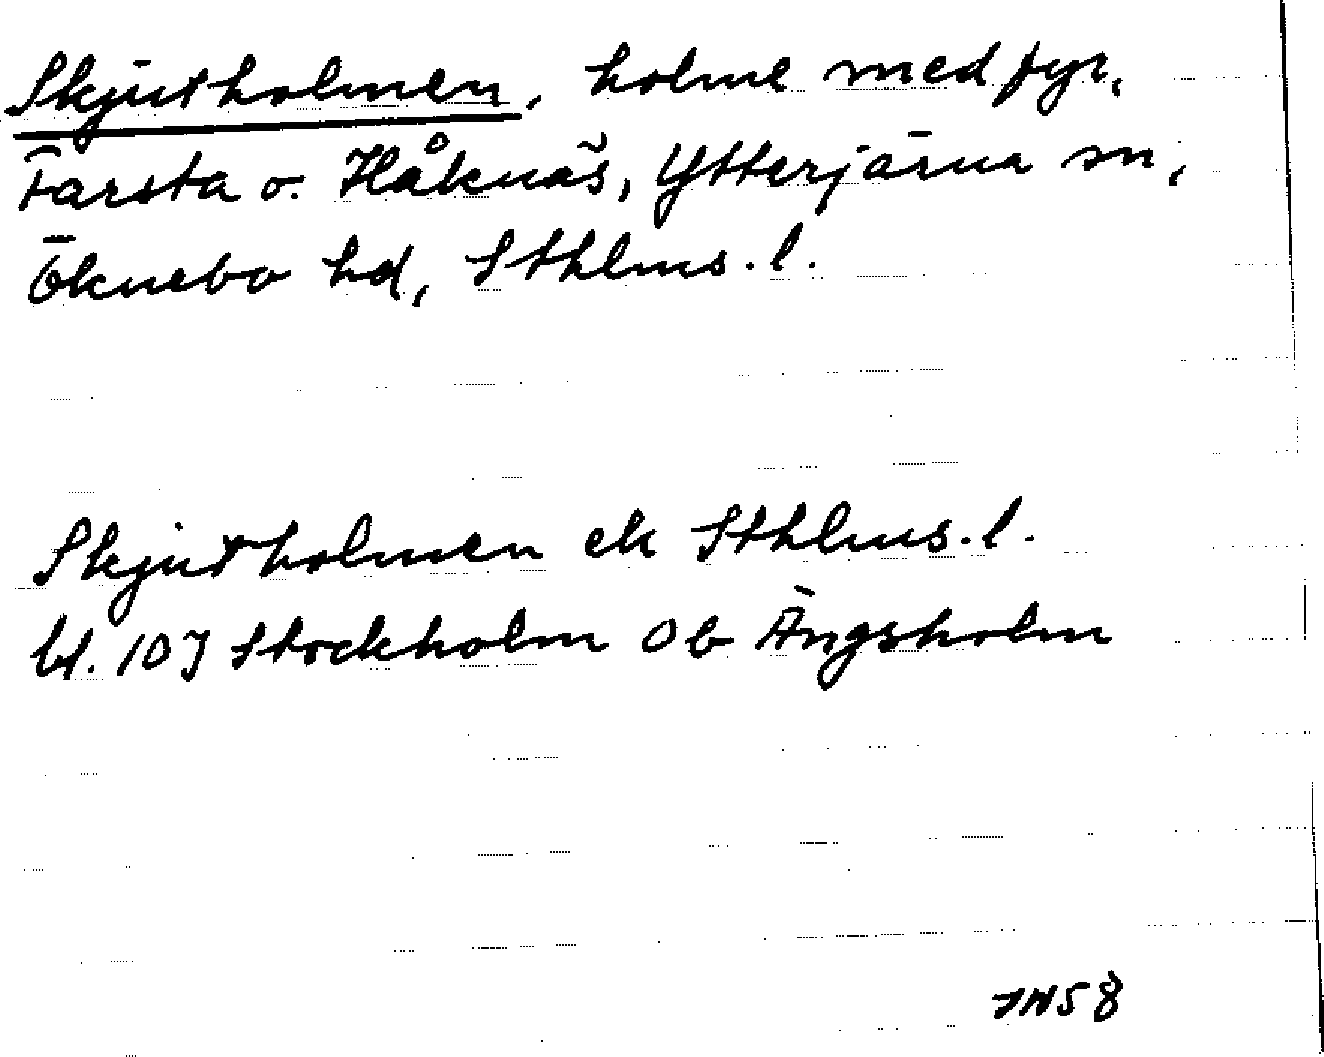 Skjutholmen, holme med fyr,
Farsta o. Håknäs, Ytterjärna sn,
Öknebo hd, Sthlms. l.
Skjutholmen ek Sthlms. l.
bl. 10J Stockholm Ob Ängsholm
JN58